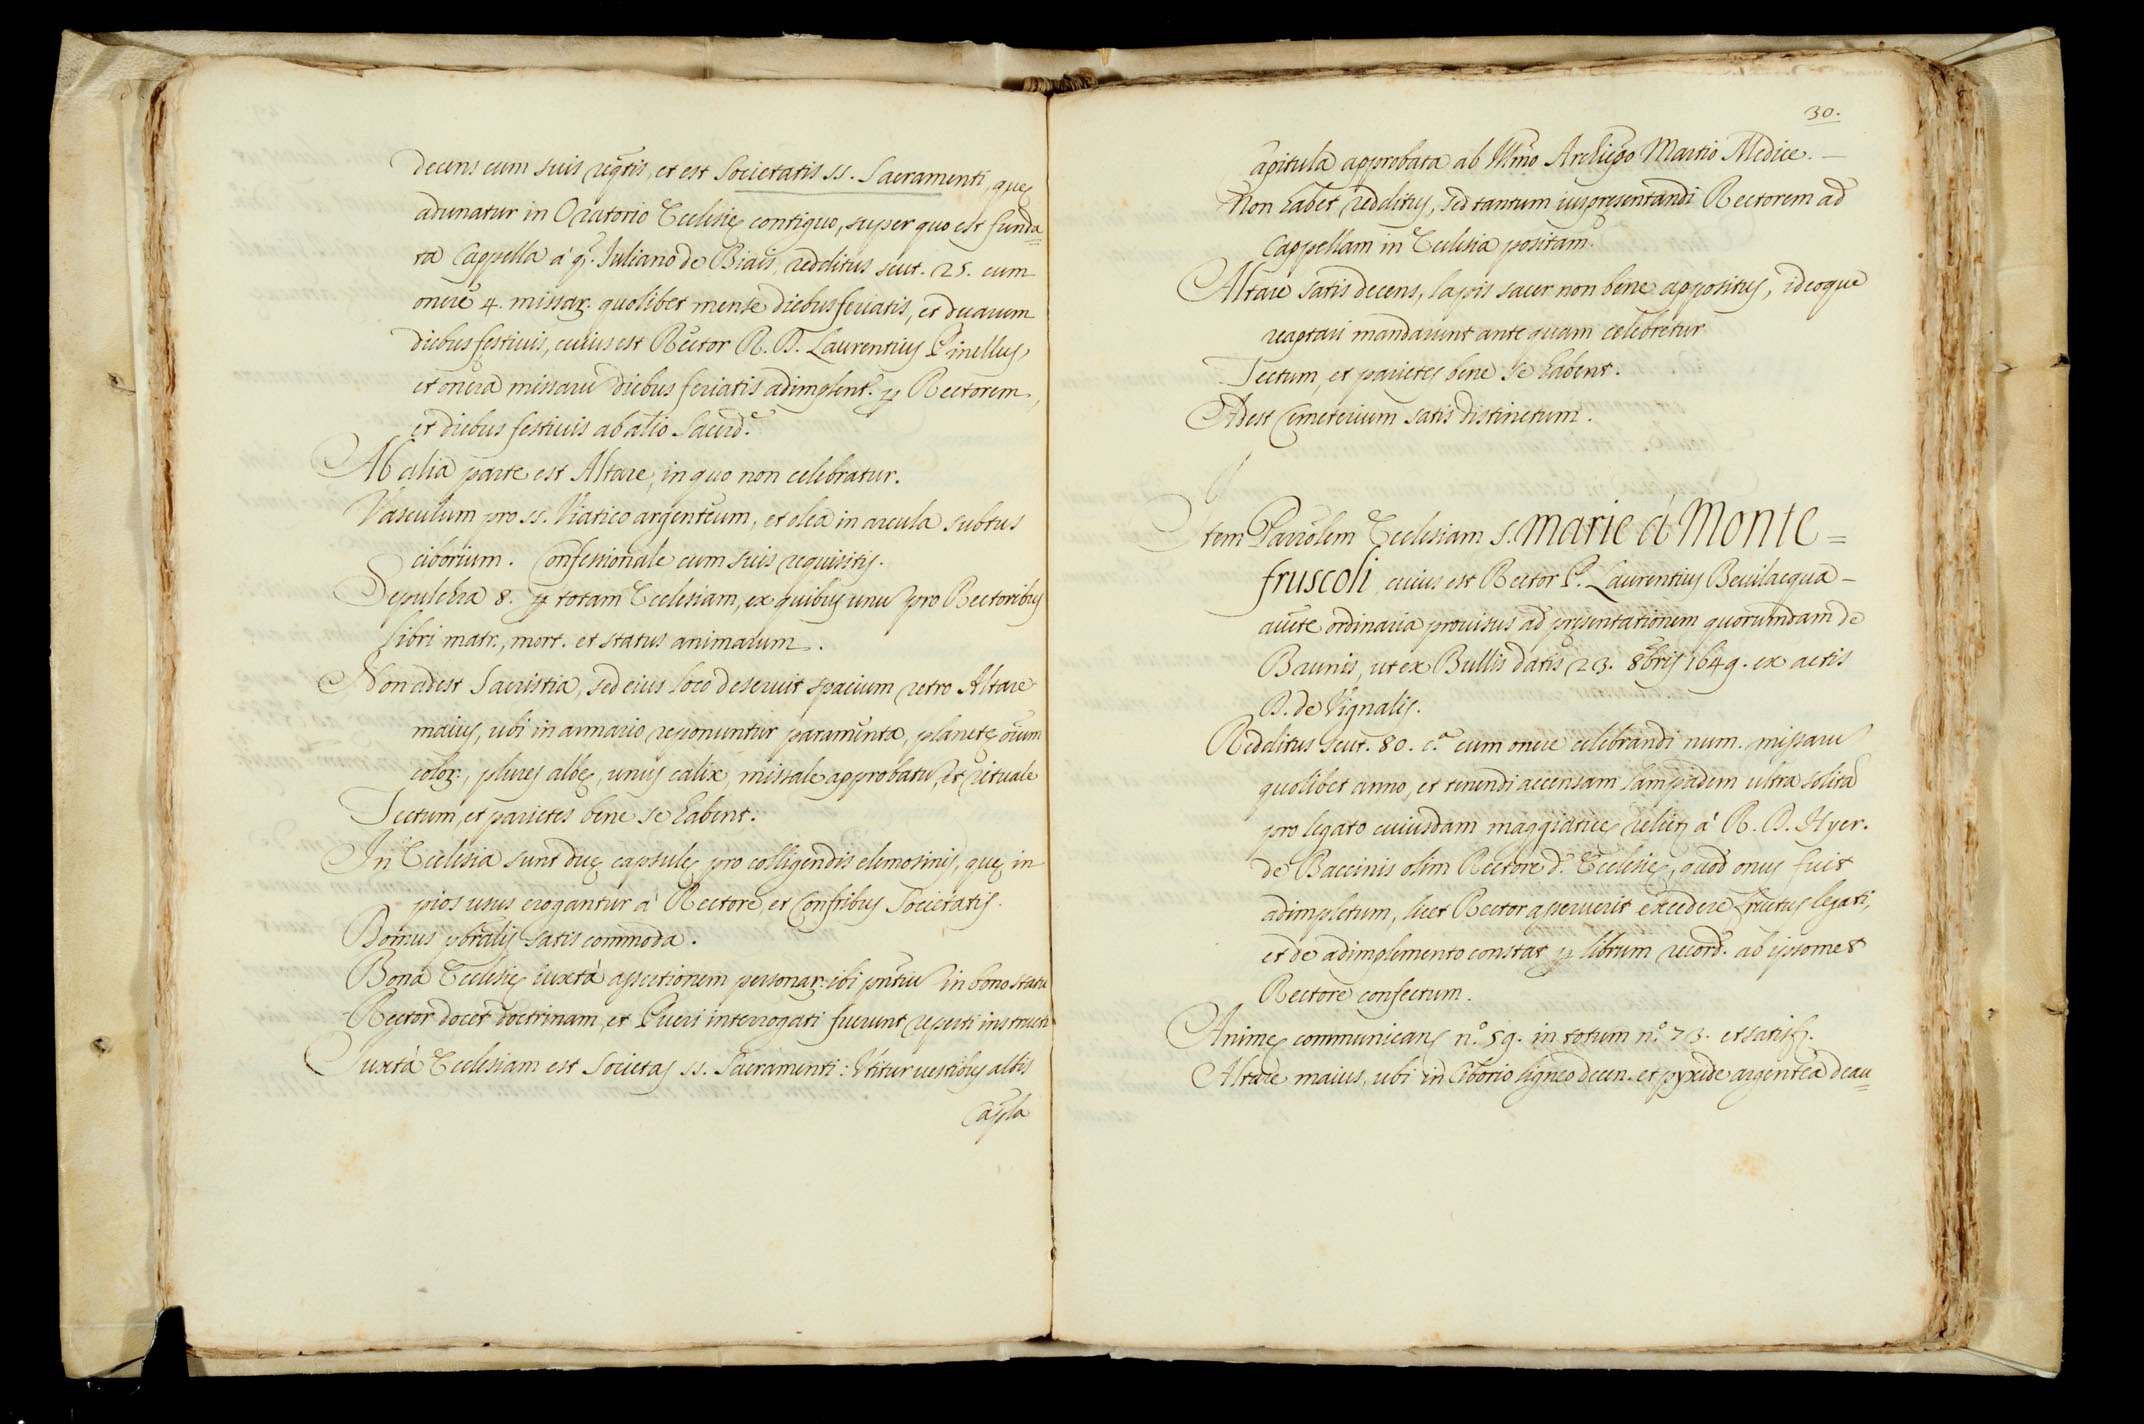 decens cum suis reqtis, et est Societatis ss. Sacramenti, quę
adunatur in Oratorio Ecclesię contiguo, super quo est funda=
ta Cappella à q. Iuliano de Biais, redditus scut. 25. cum
onere 4. missar. quolibet mense diebus feriatis, et duarum
diebus festiuis, cuius est Rector R. D. Laurentius Pinellus,
et onera missarū diebus feriatis adimplent. p Rectorem,
et diebus festiuis ab alio Sacerd.
Ab alia parte est Altare, in quo non celebratur.
Vasculum pro ss. Viatico argenteum, et olea in arcula subtus
ciborium. Confessionale cum suis requisitis.
Sepulchra 8. p totam Ecclesiam, ex quibus unū pro Rectoribus
Libri matr., mort. et status animarum.
Non adest Sacristia, sed eius loco deseruit spacium retro Altare
maius, ubi in armario reponuntur paramenta, planetę oīum
color., plures albę, unus calix, missale approbatū, et rituale
Tectum, et parietes bene se habent.
In Ecclesia sunt duę capsulę pro colligendis elemosinis, quę in
pios usus erogantur à Rectore, et Confribus Societatis.
Domus pbralis satis commoda.
Bona Ecclesię iuxtà assertionem personar. ibi pntiū in bono statu
Rector docet doctrinam, et Pueri interrogati fuerunt reperti instructi
Iuxtà Ecclesiam est Societas ss. Sacramenti: Vtitur uestibus albis
Capla
30.
Capitula approbata ab Illmo Archiepo Martio Medice.
Non habet redditus, sed tantum ius presentandi Rectorem ad
Cappellam in Ecclesia positam.
Altare satis decens, lapis sacer non bene appositus, ideoque
reaptari mandarunt ante quam celebretur
Tectum, et parietes bene se habent.
Adest Cemeterium satis distinctum.
Item Parrolem Ecclesiam S. Marie à Monte=
fruscoli, cuius est Rector P. Laurentius Beuilacqua
aucte ordinaria prouisus ad pręsentationem quorumdam de
Baunis, ut ex Bullis datis 23. 8bris 1649. ex actis
D. de Vignalis.
Redditus scut. 80. c.ª cum onere celebrandi num. missarū
quolibet anno, et tenendi accensam lampadem ultra solitā
pro legato cuiusdam maggiaticę relictę à R. D. Hyer.
de Baccinis olim Rectore d. Ecclesię, quod onus fuit
adimpletum, licet Rector asseruerit excedere fructus legati,
et de adimplemento constat p librum record. ab ipsomet
Rectore confectum.
Animę communicans n.º 59. in totum n.º 73. et satisf.
Altare maius, ubi in Ciborio ligneo decen. et pyxide argentea deau=